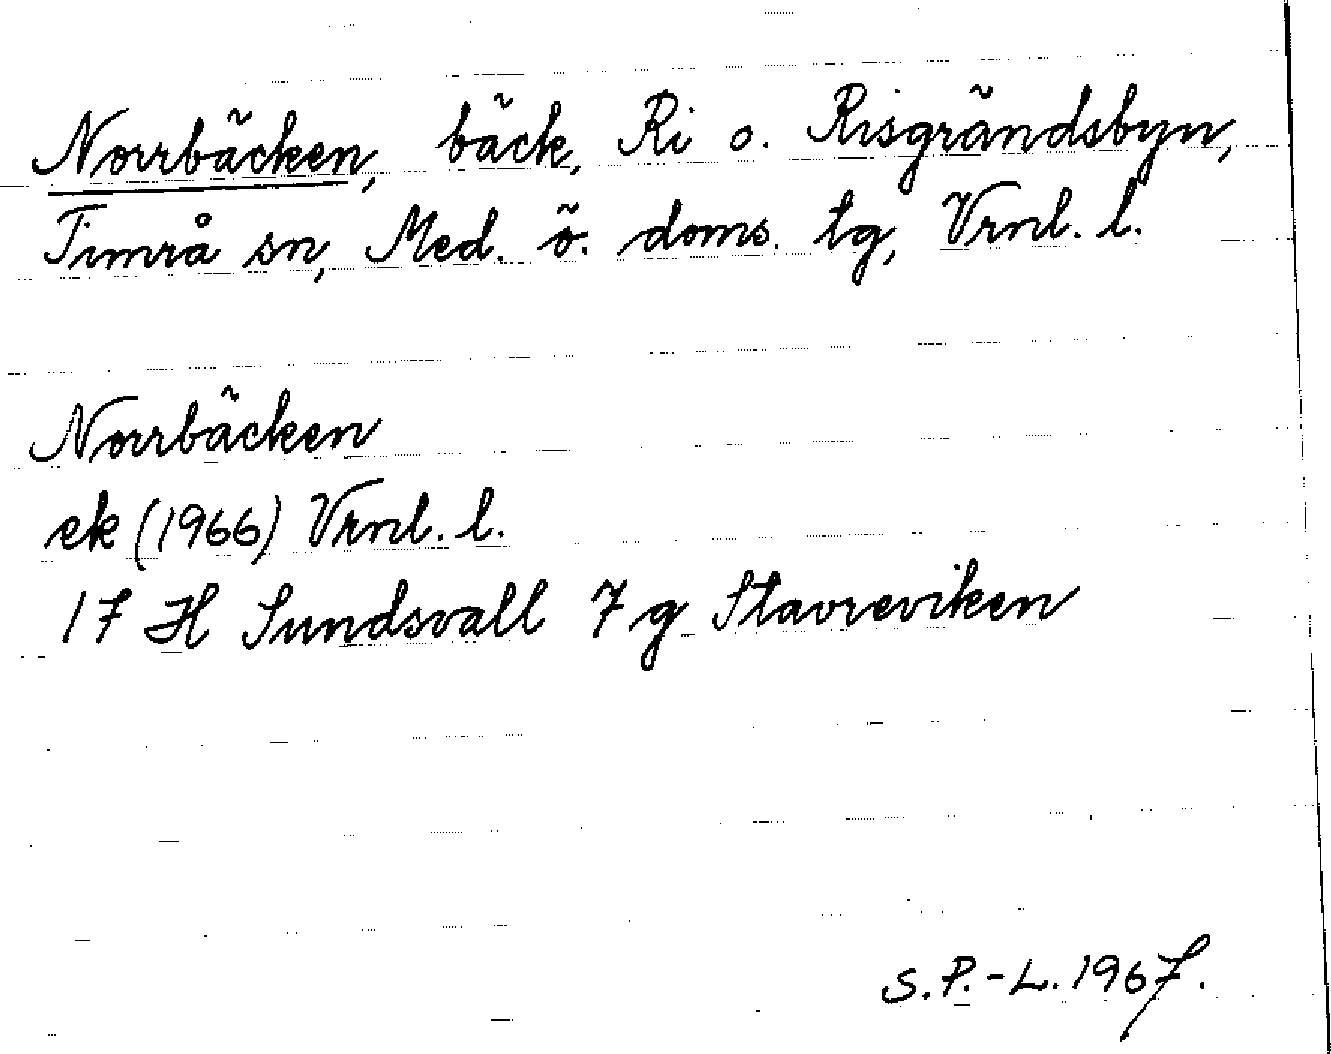 Norrbäcken, bäck, Ri o. Risgrändsbyn,
Timrå sn, Med. ö. doms. tg, Vrnl. l.
Norrbäcken
ek (1966) Vrnl. l.
17 H Sundsvall 7 g Stavreviken
S.P.-L. 1967.